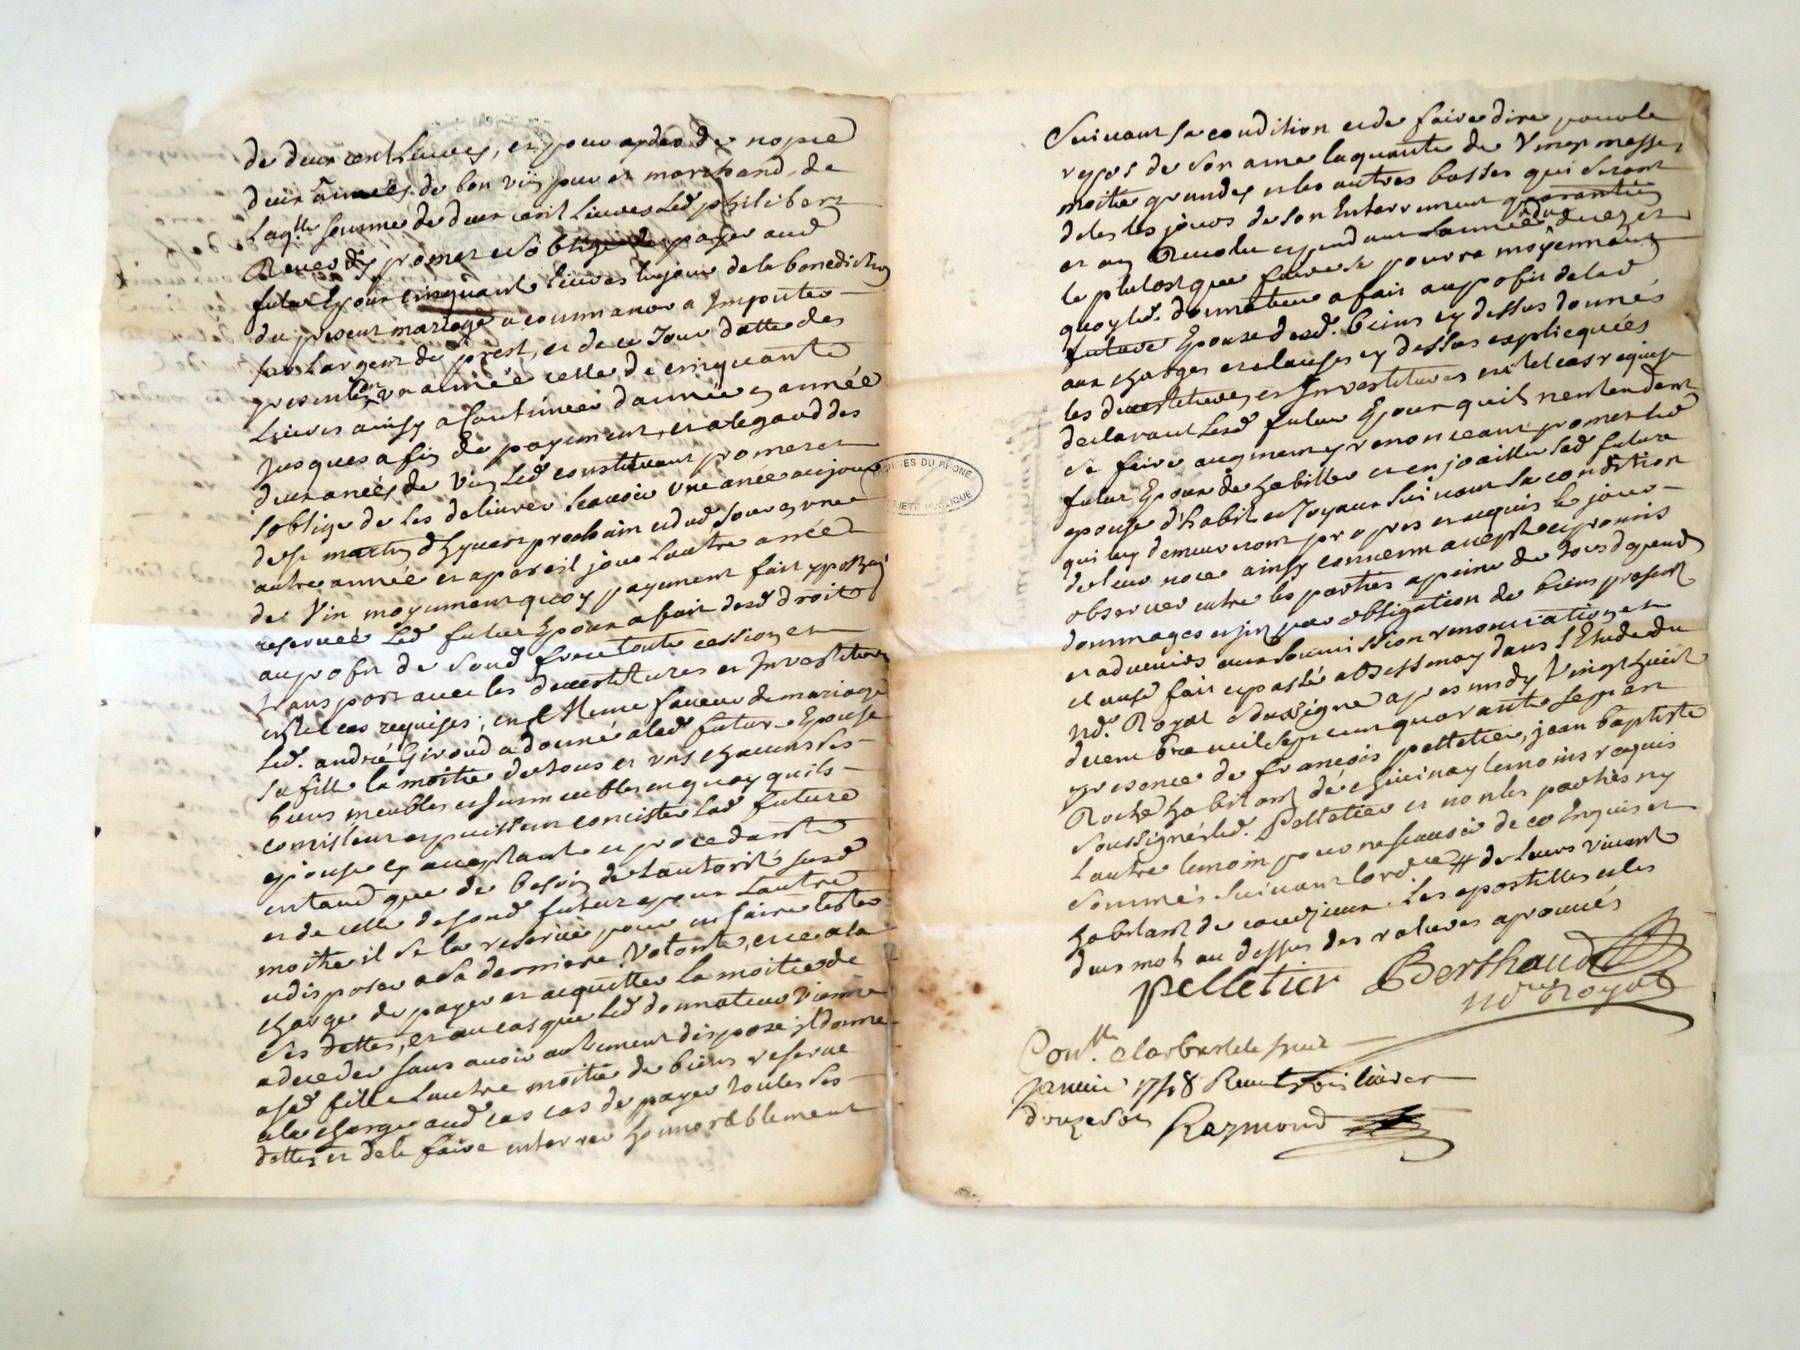 de deux cent Livres, et pour
deux années de bon vin pur et marchand, de
Laqlle somme de deux cent Livres Led philibert
promet et s'oblige de payer aud
futur Epoux cinquante livres le jour de la benediction
du present mariage a commancer a Imputer
sur Largent de prest, et de ce Jour datte des
presentes en une année celle de cinquante
Livres ainsy a Continuer d'année en année
Jusques a fin de payement, et a legard des
deux anées de vin Led constituant promet et
s'oblige de les delivrer scavoir une anée au jour
de st martin d'hyvert prochain et dud Jour en une
autre année et a pareil jour Lautre anée
de Vin moyennant quoy payement fait
reservé Led futur Epoux a fait desd droits
au profit de sond frere toute cession et
transport avec les devestitures et Investitures
en tel cas requises, en mesme faveur de mariage
Led. andré Giroud a donné a lad future Epouse
sa fille la moitié de tous et uns chacuns ses
biens meubles et Immeubles en quoy quils
consistent et puissent concister lad future
epouse cy acceptante et procedante
entant que de besoin de Lautorité susd
et de celle de sond futur epoux Lautre
moitié il se la reservée pour en faire tester
et disposer a sa derniere Volonté, et ce a la
charge de payer et acquitter la moitié de
ses dettes, et au cas que Led donnateur Vienne
a deceder sans avoir autrement disposé il donne
a sad fille Lautre moitié de biens reservé
a la charge aud cas de payer toutes ses
dettes et de le faire enterrer honnorablement
Suivant sa condition et de faire dire pour le
repos de son ame la quantité de Vingt messes
moitié grandes et les autres basses qui seront
dites les jours de son Enterrement quarantin
et an Revolu et pendant Lannée du deces et
le plutost que faire se pourra moyennant
quoy led. donnateur a fait au profit de lad
future Epouse desd. biens cy dessus donnés
aux charges et clauses cy dessus expliquées
les devestitures et Investitures en tel cas requises
declarant Lesd futur Epoux quil nentendent
se faire augment y renonceant promet led
futur Epoux de habiller et enjoailler lad future
epouse d'habits et Joyaux suivant sa condition
qui luy demeureront propres et acquis le jour
de leur noce ainsy convenu accepté et promis
observer entre les parties a peine de tous depends
dommages et par obligation de biens presents
et advenirs aux soumission renonciations et
clause fait et passé a Bessenay dans l'Etude du
nd. Royal soussigné apres midy Vingt huit
decembre mil sept cent quarante sept en
presence de francois pelletier, jean baptiste
Roche habitant de chevinay temoins requis
soussigné led. Pelletier et non les parties ny
Lautre temoin pour ne scavoir de ce Enquis et
Sommés suivant lord.ce # de leurs vivant
habitant de courzieux. Les apostilles et les
deux mots au dessus des ratures aprouvés
pelletier Berthaud
nore Royal
Con.lle a larbresle le huit
janvier 1748 Recu trois livres
douze sols Raymond
ARCHIVES DU RHONE
PROPRIETE PUBLIQUE